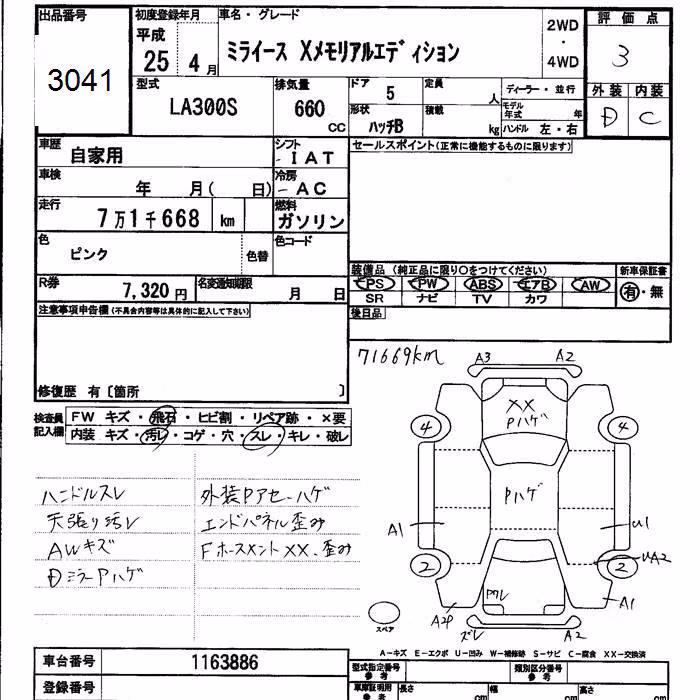 出品番号
3041
初度登録年月
平成
25 4 月
車名・グレード
ミライース Xメモリアルエディション
2WD
・
4WD
評価点
3
外装 内装
D C
型式
LA300S
排気量
660
CC
ドア
5
形状
ハッチB
定員
人
積載
kg
ディーラー・並行
モデル年式 年
ハンドル 左・右
車歴
自家用
シフト
IAT
車検
年 月( 日)
冷房
AC
走行
7万1千668 km
燃料
ガソリン
色
ピンク
色替
色コード
R券
7,320円
名変通知期限
月 日
セールスポイント(正常に機能するものに限ります)
装備品(純正品に限り○をつけてください)
PS PW ABS エアB AW
SR ナビ TV カワ
新車保証書
有・無
後日品
注意事項申告欄(不具合内容等は具体的に記入して下さい)
修復歴 有〔箇所 〕
検査員記入欄
FW キズ・飛石・ヒビ割・リペア跡・×要
内装 キズ・汚レ・コゲ・穴・スレ・キレ・破レ
71669km
A3 A2
XX
Pハゲ
4 4
Pハゲ
A1 U1
2 2
UA2
ハンドルスレ
天張り汚レ
AWキズ
DミラーPハゲ
外装Pアセ-ハゲ
エンドパネル歪み
FホースメントXX、歪み
Pワレ
A2P
ズレ
A2
A1
スペア
A-キズ E-エクボ U-凹み W-補修跡 S-サビ C-腐食 XX-交換済
車台番号
1163886
登録番号
型式指定番号
参考
類別区分番号
参考
車庫証明用
参考
長さ cm
幅 cm
高さ cm